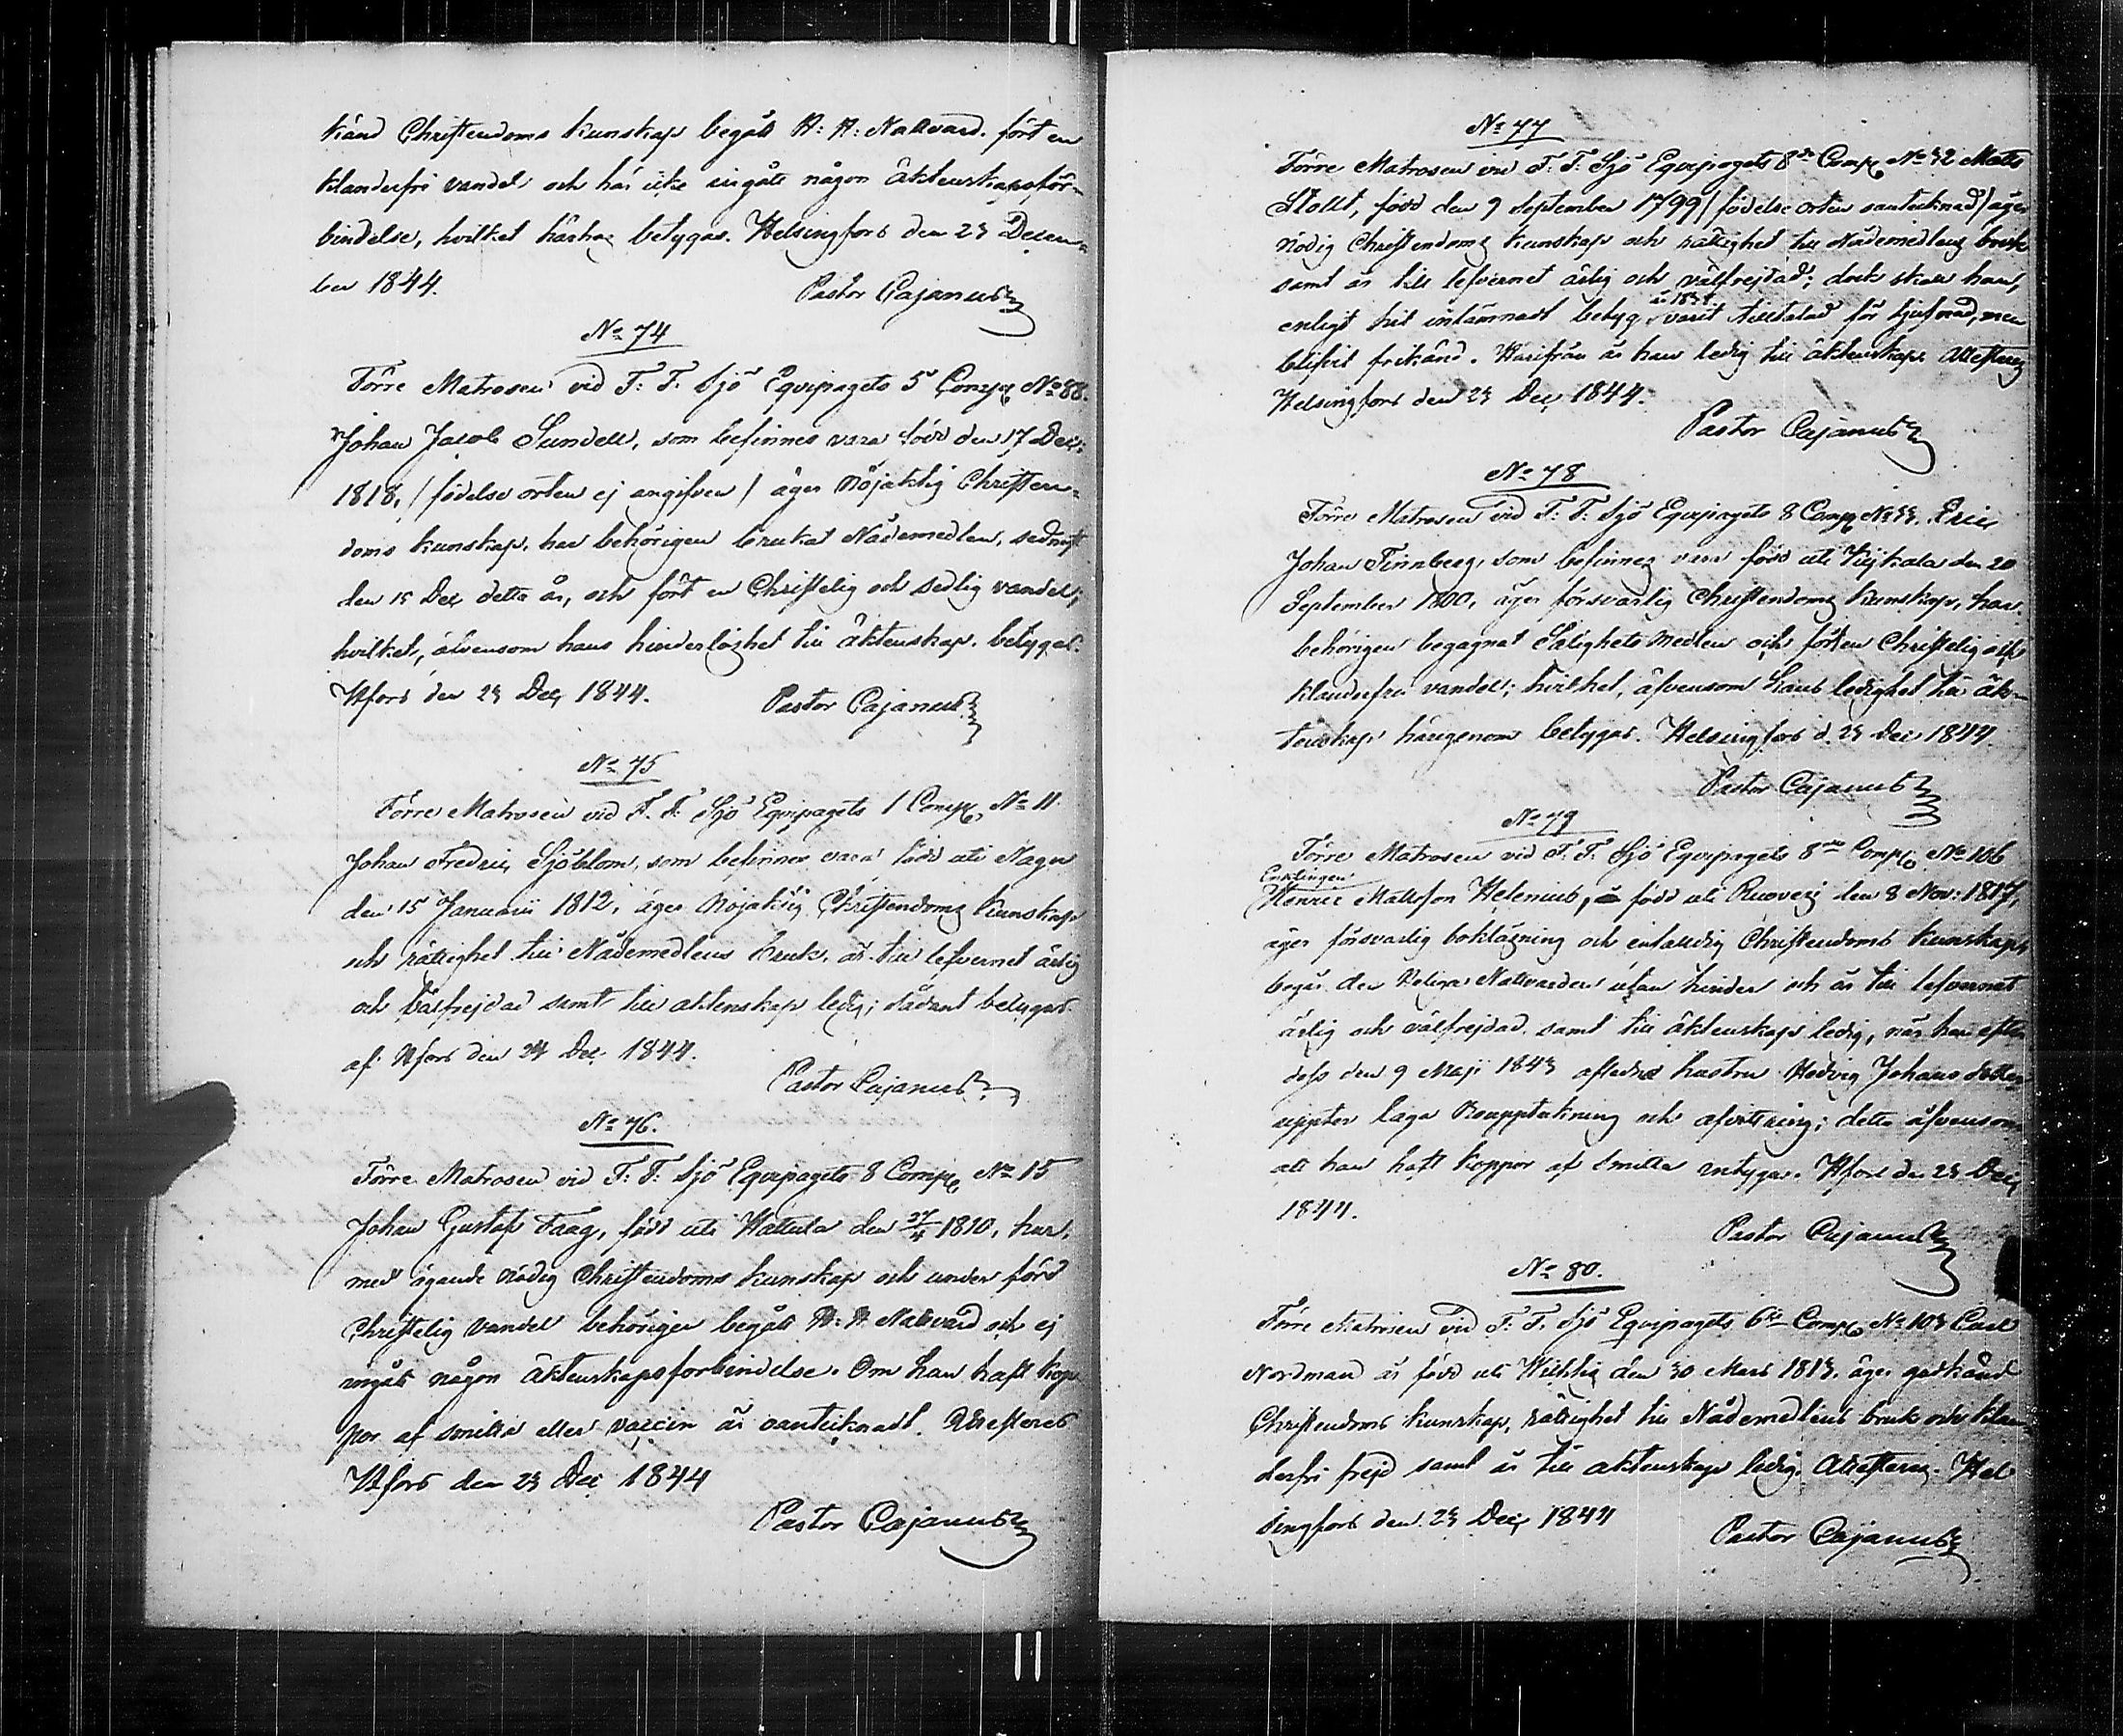 känd Christendoms kunskap begått H: H: Nattvard. fört en
klanderfri vandel och har icke ingått någon äktenskapsför-
bindelse, hvilket härhos betygas. Helsingfors den 23 Decem-
ber 1844. Pastor Cajanus
No 74
Förre Matrosen vid F: F: Sjö Equipagets 5 Comp. No 88.
Johan Jacob Sundell, som befinnes vara född den 17 Dec:
1818, / födelse orten ej angifven / äger nöjaktig Christen-
doms kunskap, har behörigen brukat Nådemedlen, sednast
den 15 Dec. detta år, och fört en Christelig och sedlig vandel;
hvilket, äfvensom hans hinderlöshet till äktenskap. betygas.
Hfors den 23 Dec. 1844. Pastor Cajanus
No 75
Förre Matrosen vid F. F: Sjö Equipagets 1 Comp. No 11
Johan Fredric Sjöblom, som befinnes vara född uti Nagu
den 15 Januarii 1812, äger nöjaktig Christendoms kunskap
och rättighet till Nådemedlens bruk, är till lefvernet ärlig
och välfrejdad samt till äktenskap ledig; sådant betygas
af Hfors den 24 Dec. 1844.
Pastor Cajanus
No 76.
Förre Matrosen vid F: F: Sjö Equipagets 8 Comp. No 15
Johan Gustaf Faag, född uti Hattula den 27/4 1810, har,
med ägande nödig Christendoms kunskap och under förd
Christelig vandel behörigen begått H: H. Nattvard och ej
ingått någon äktenskapsforbindelse. Om han haft kop
por af smitta eller vaccin är oantecknadt. Attesteras
Hfors den 23 Dec 1844
Pastor Cajanus
No 77
Förre Matrosen vid F: F: Sjö Equipagets 8de Comp. No 32 Matts
Stollt, född den 9 September 1799 / födelse orten oantecknad / äger
nödig Christendoms kunskap och rättighet till Nådemedlens bruk
samt är till lefvernet ärlig och välfrejdad; dock skall han,
enligt hit inlämnadt betyg varit tilltalad för tjufnad, men
blifvit frikänd. Härifrån är han ledig till äktenskap. Attesteras
Helsingfors den 23 Dec. 1844.
Pastor Cajanus
No 78
Förre Matrosen vid F: F: Sjö Equipagets 8 Comp. No 33. Eric
Johan Finnberg, som befinnes vara född uti Kijkala den 20
September 1800, äger försvarlig Christendoms kunskap, har
behörigen begagnat Salighets medlen och fört en Christelig och
klanderfri vandel; hvilket, äfvensom hans ledighet till äk-
tenskap härigenom betygas. Helsingfors d. 23 Dec 1844
Pastor Cajanus
No 79
Förre Matrosen vid F. F: Sjö Equipagets 8de Comp. No 106
Enklingen
Henric Mattsson Helenius, född uti Ruovesi den 8 Nov: 1817,
äger försvarlig bokläsning och enfaldig Christendoms kunskap
begår den Heliga Nattvarden utan hinder och är till lefvernet
ärlig och välfrejdad. samt till äktenskap ledig, när han efter
dess den 9 Maji 1843 aflidna hustru Hedvig Johans dotter
uppter laga Bouppteckning och afvittring; detta äfvensom
att han haft koppor af smitta intygas. Hfors den 23 Dec.
1844.
Pastor Cajanus
No 80.
Förre Matrosen vid F: F. Sjö Equipagets 6te Comp. No 103 Carl
Nordman är född uti Wichtis den 30 Mars 1813. äger godkänd
Christendoms kunskap, rättighet till Nådemedlens bruk och klan-
derfri frejd samt är till äktenskap ledig. Attesteras. Hel
singfors den 23 Dec. 1844
Pastor Cajanus